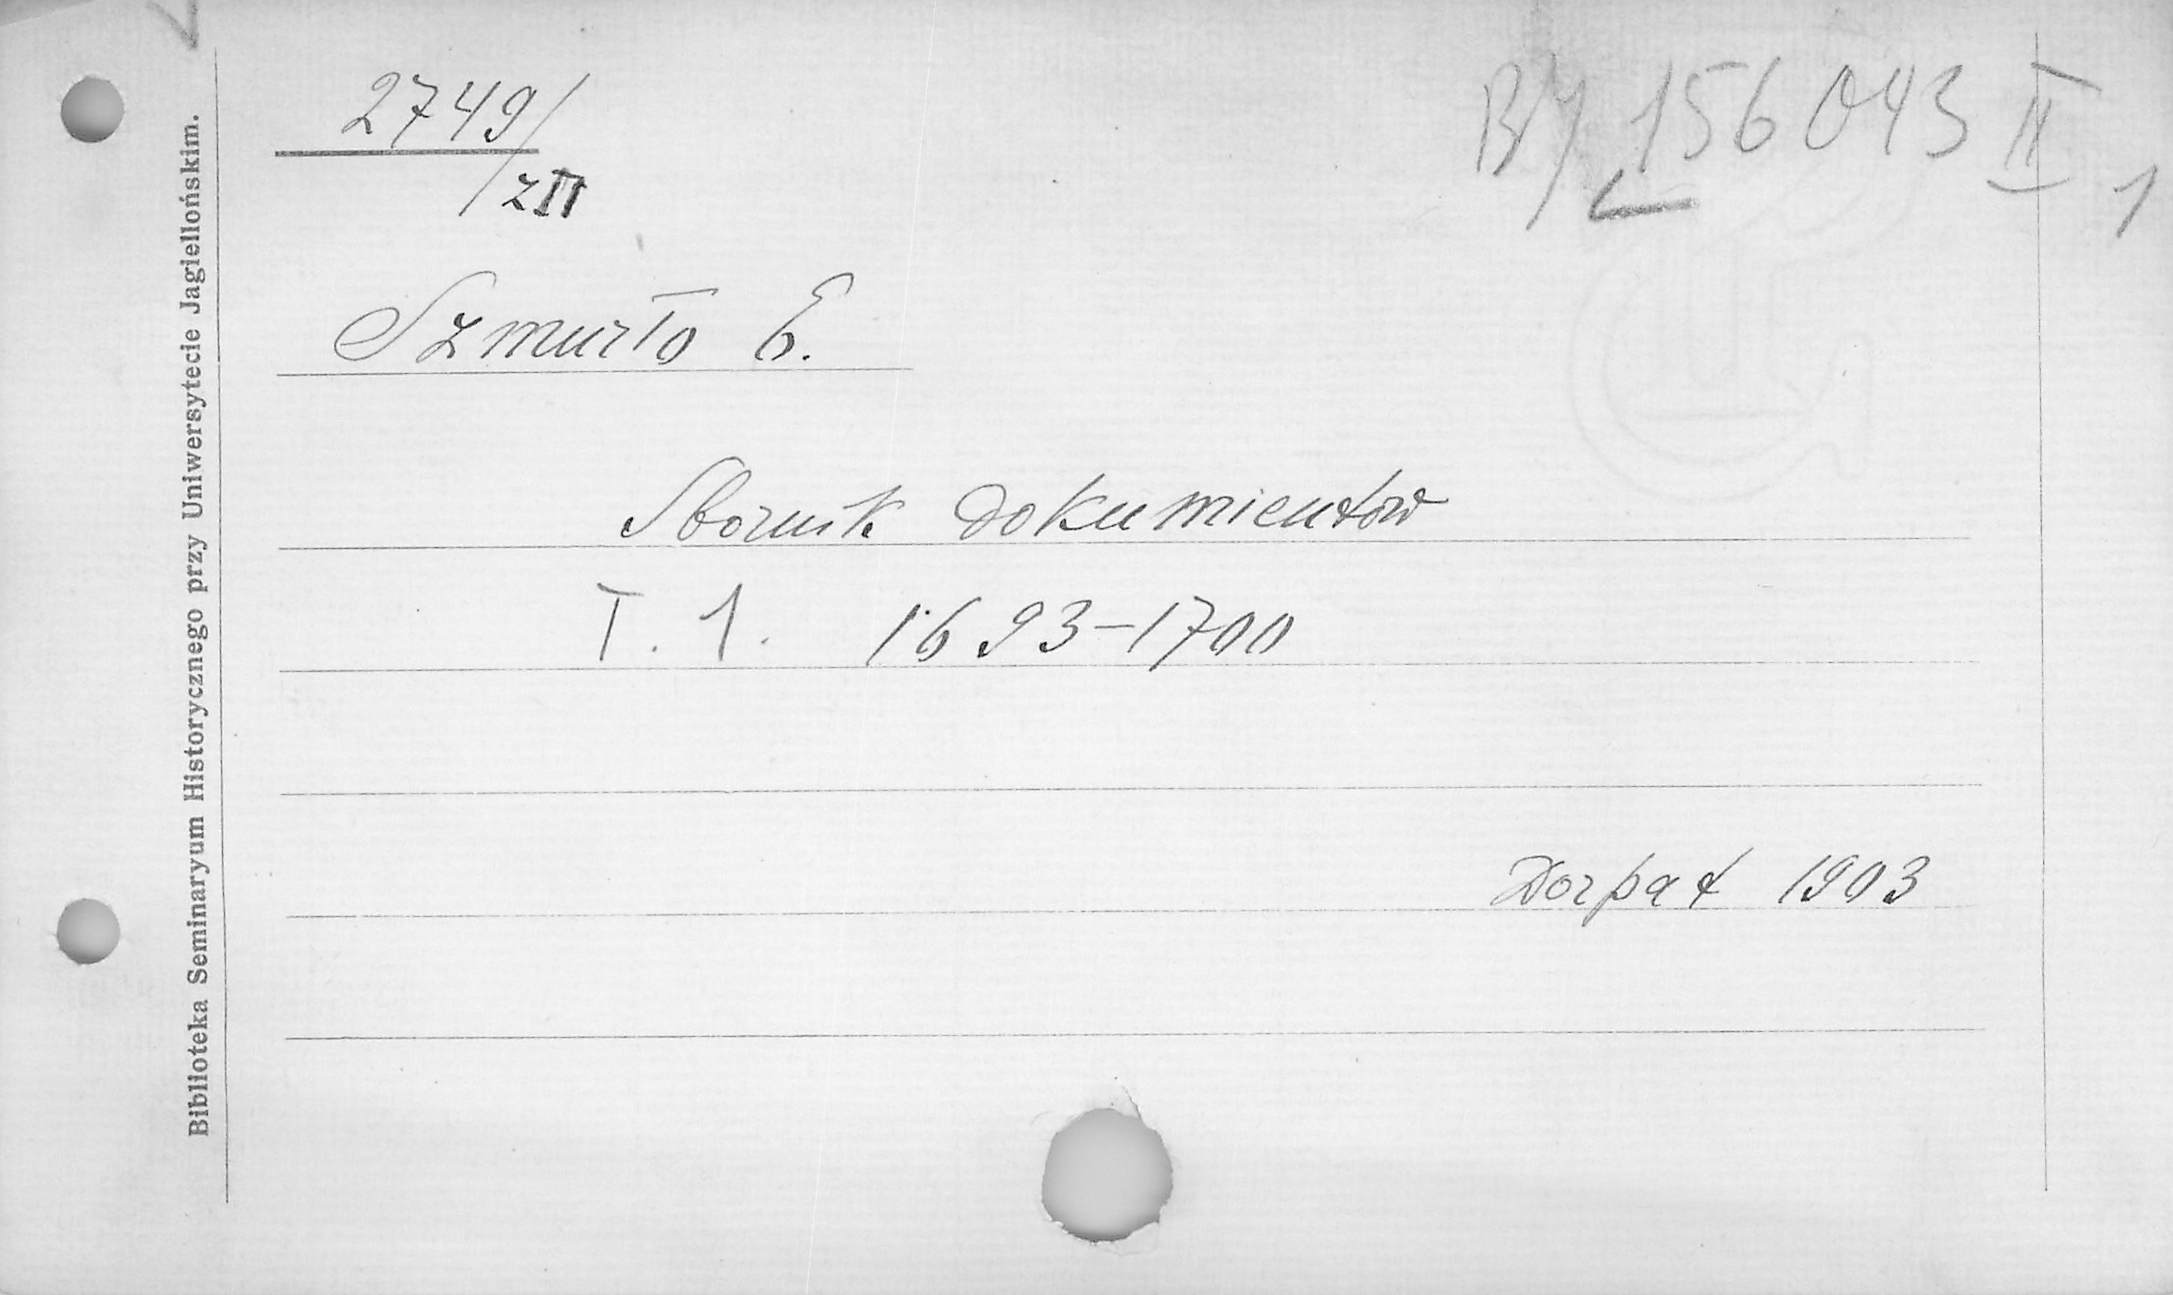 2749/
zII
BJ 156043 II
1
Szmurło E.
Sbornik dokumientow
T. 1. 1693-1700
Dorpat 1903
Biblioteka Seminaryum Historycznego przy Uniwersytecie Jagiellońskim.